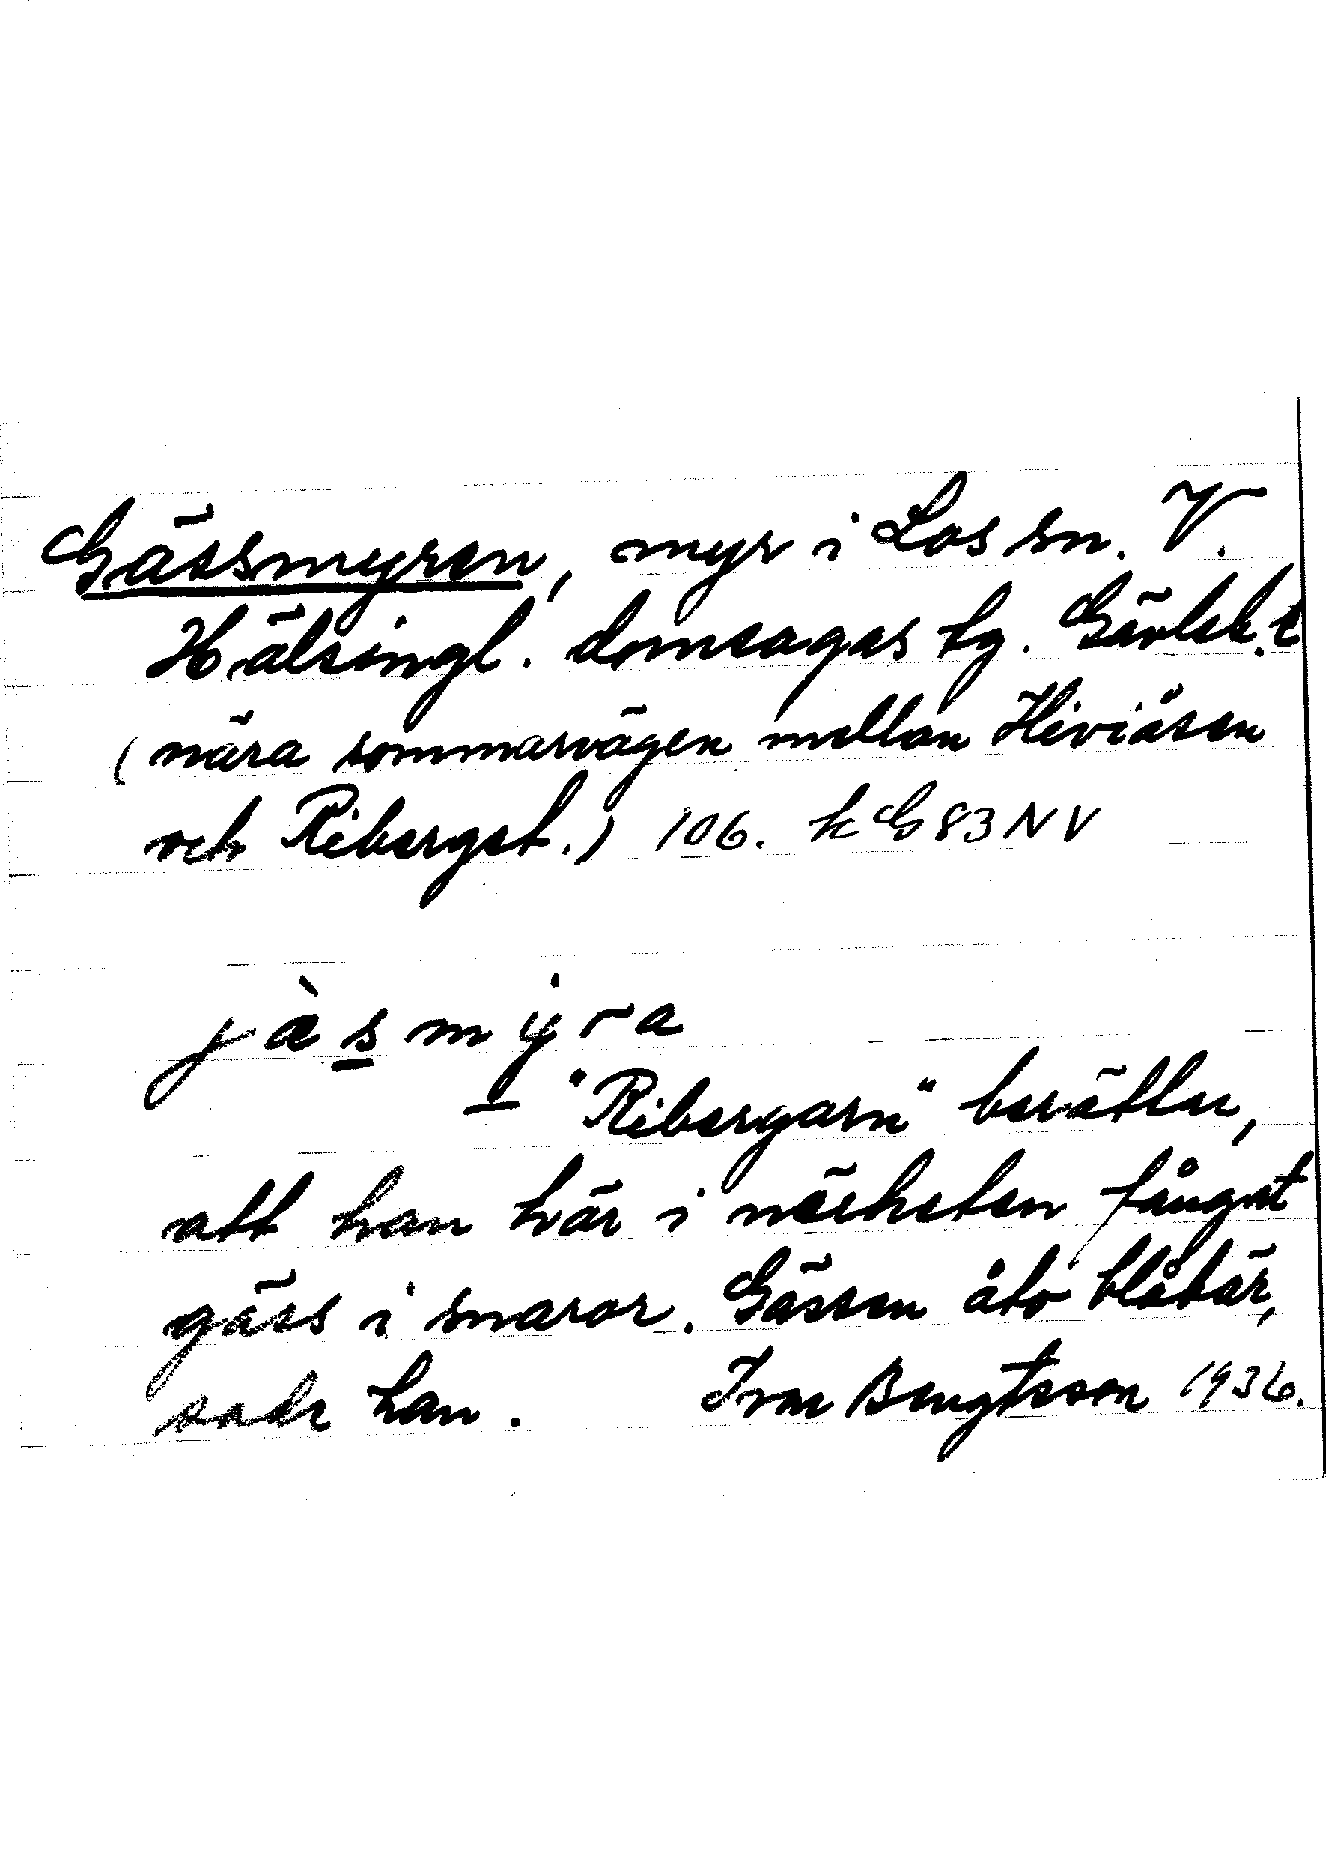 Gässmyren, myr i Los sn. V.
Hälsingl. domsagas tg. Gävleb. l
(nära sommarvägen mellan Hiviåsen
och Riberget.) 106. k G 83 NV
jàsmyra
"Ribergarn" berättar,
att han här i närheten fångat
gäss i snaror. Gässen åto blåbär,
sade han. Ivar Bengtsson 1936.